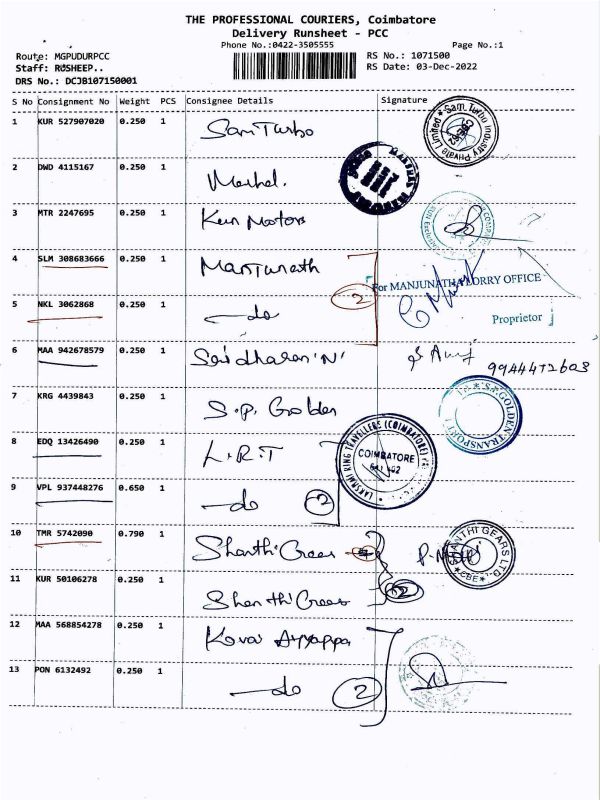 THE PROFESSIONAL COURIERS, Coimbatore
Delivery Runsheet - PCC
Phone No.:0422-3505555 Page No.:1
Route: MGPUDURPCC RS No.: 1071500
Staff: ROSHEEP.. RS Date: 03-Dec-2022
DRS No.: DCJB107150001
S No Consignment No Weight PCS Consignee Details Signature
1 KUR 527907020 0.250 1 Sam Turbo
Sam Turbo Industry Private Limited
2 DWD 4115167 0.250 1
3 MTR 2247695 0.250 1 Ken Motors
4 SLM 308683666 0.250 1 Manjunath
For MANJUNATHA LORRY OFFICE
2
5 NKL 3062868 0.250 1 —do
Proprietor
6 MAA 942678579 0.250 1 Saidharan 'N'
7 KRG 4439843 0.250 1 S.P. Golden
S.P. GOLDEN TRANSPORT
8 EDQ 13426490 0.250 1 L.R.T
LAKSHMI RING TRAVELLERS (COIMBATORE)
COIMBATORE
9 VPL 937448276 0.650 1 —do 2
10 TMR 5742090 0.790 1 Shanthi Gears
SHANTHI GEARS LTD
CBE
11 KUR 50106278 0.250 1 Shanthi Gears 2
12 MAA 568854278 0.250 1 Kovai Ayyappa
13 PON 6132492 0.250 1 —do 2